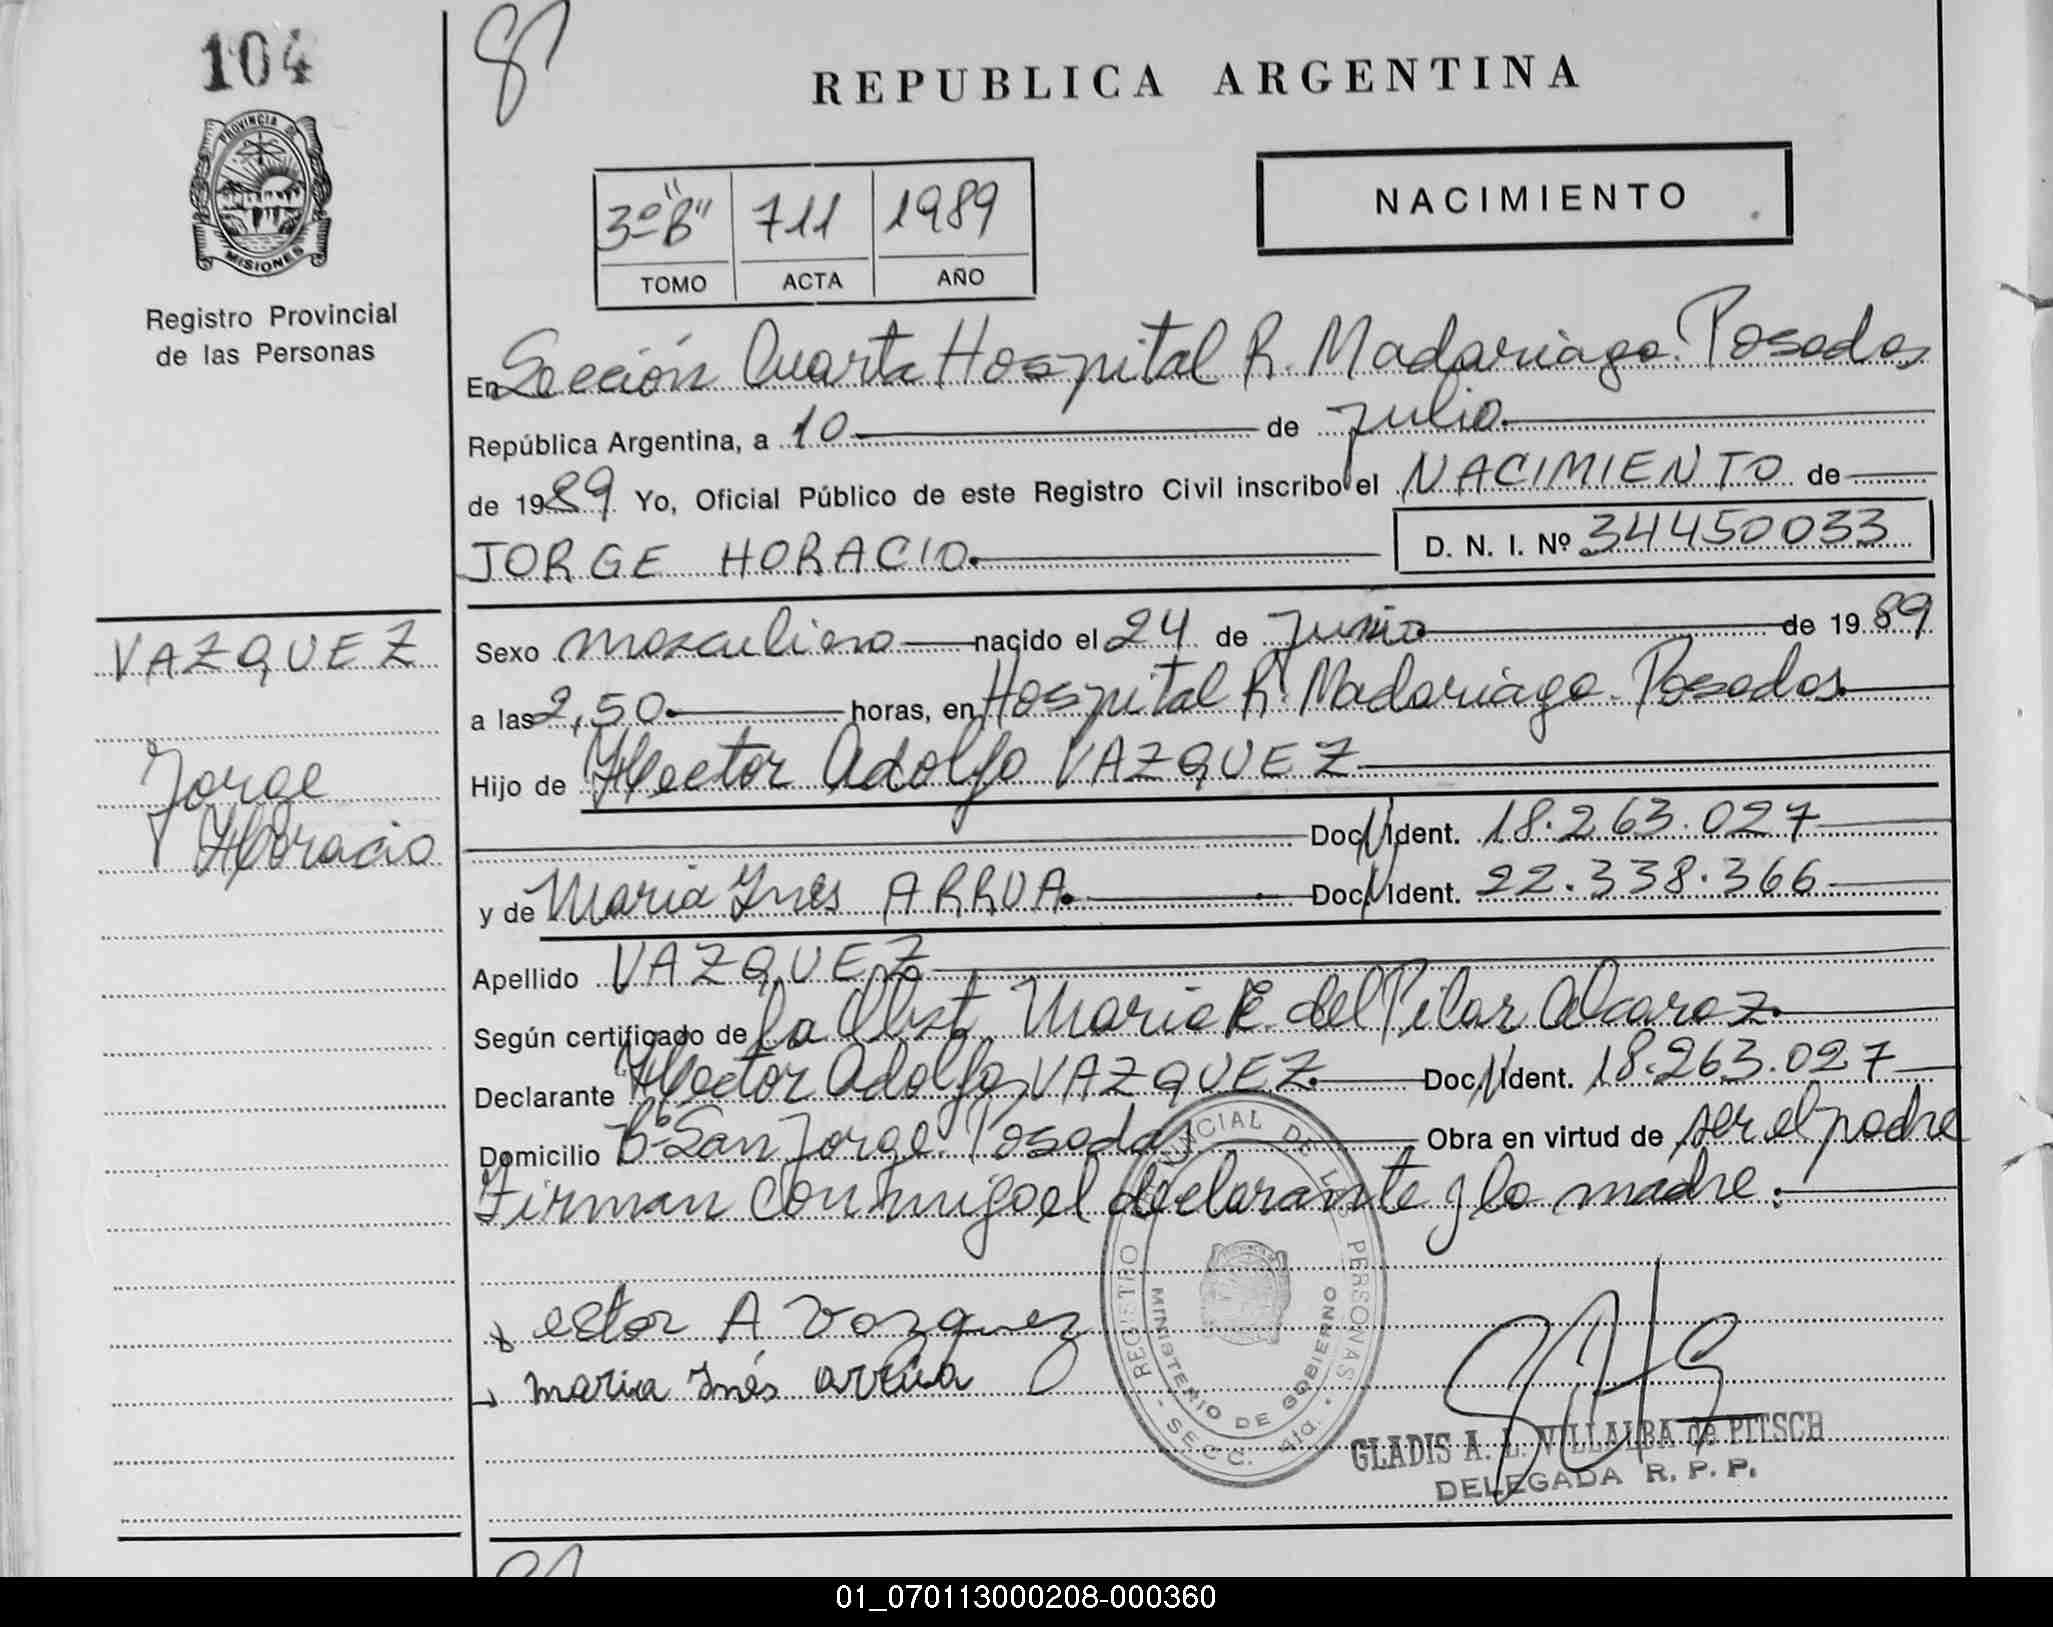 104
PROVINCIA DE
MISIONES
Registro Provincial
de las Personas
REPUBLICA ARGENTINA
NACIMIENTO
3º "B" 711 1989
TOMO ACTA AÑO
En Sección Cuarta Hospital R. Madariaga. Posadas
República Argentina, a 10 de julio
de 1989 Yo, Oficial Público de este Registro Civil inscribo el NACIMIENTO de
JORGE HORACIO D. N. I. Nº 34450033
VAZQUEZ
Jorge
Horacio
Sexo masculino nacido el 24 de Junio de 1989
a las 2,50 horas, en Hospital R. Madariaga. Posadas
Hijo de Hector Adolfo VAZQUEZ
Doc. Ident. 18.263.027
y de Maria Inés ARRUA Doc. Ident. 22.338.366
Apellido VAZQUEZ
Según certificado de la Obst. Maria E. del Pilar Alcaraz
Declarante Hector Adolfo VAZQUEZ Doc. Ident. 18.263.027
Domicilio Bº San Jorge. Posadas Obra en virtud de ser el padre
Firman conmigo el declarante y la madre.
estor A Vazquez
maria Inés arrúa
REGISTRO PROVINCIAL DE LAS PERSONAS
MINISTERIO DE GOBIERNO
SECC. 4ta.
GLADIS A. L. VILLALBA de PITSCH
DELEGADA R. P. P.
01_070113000208-000360